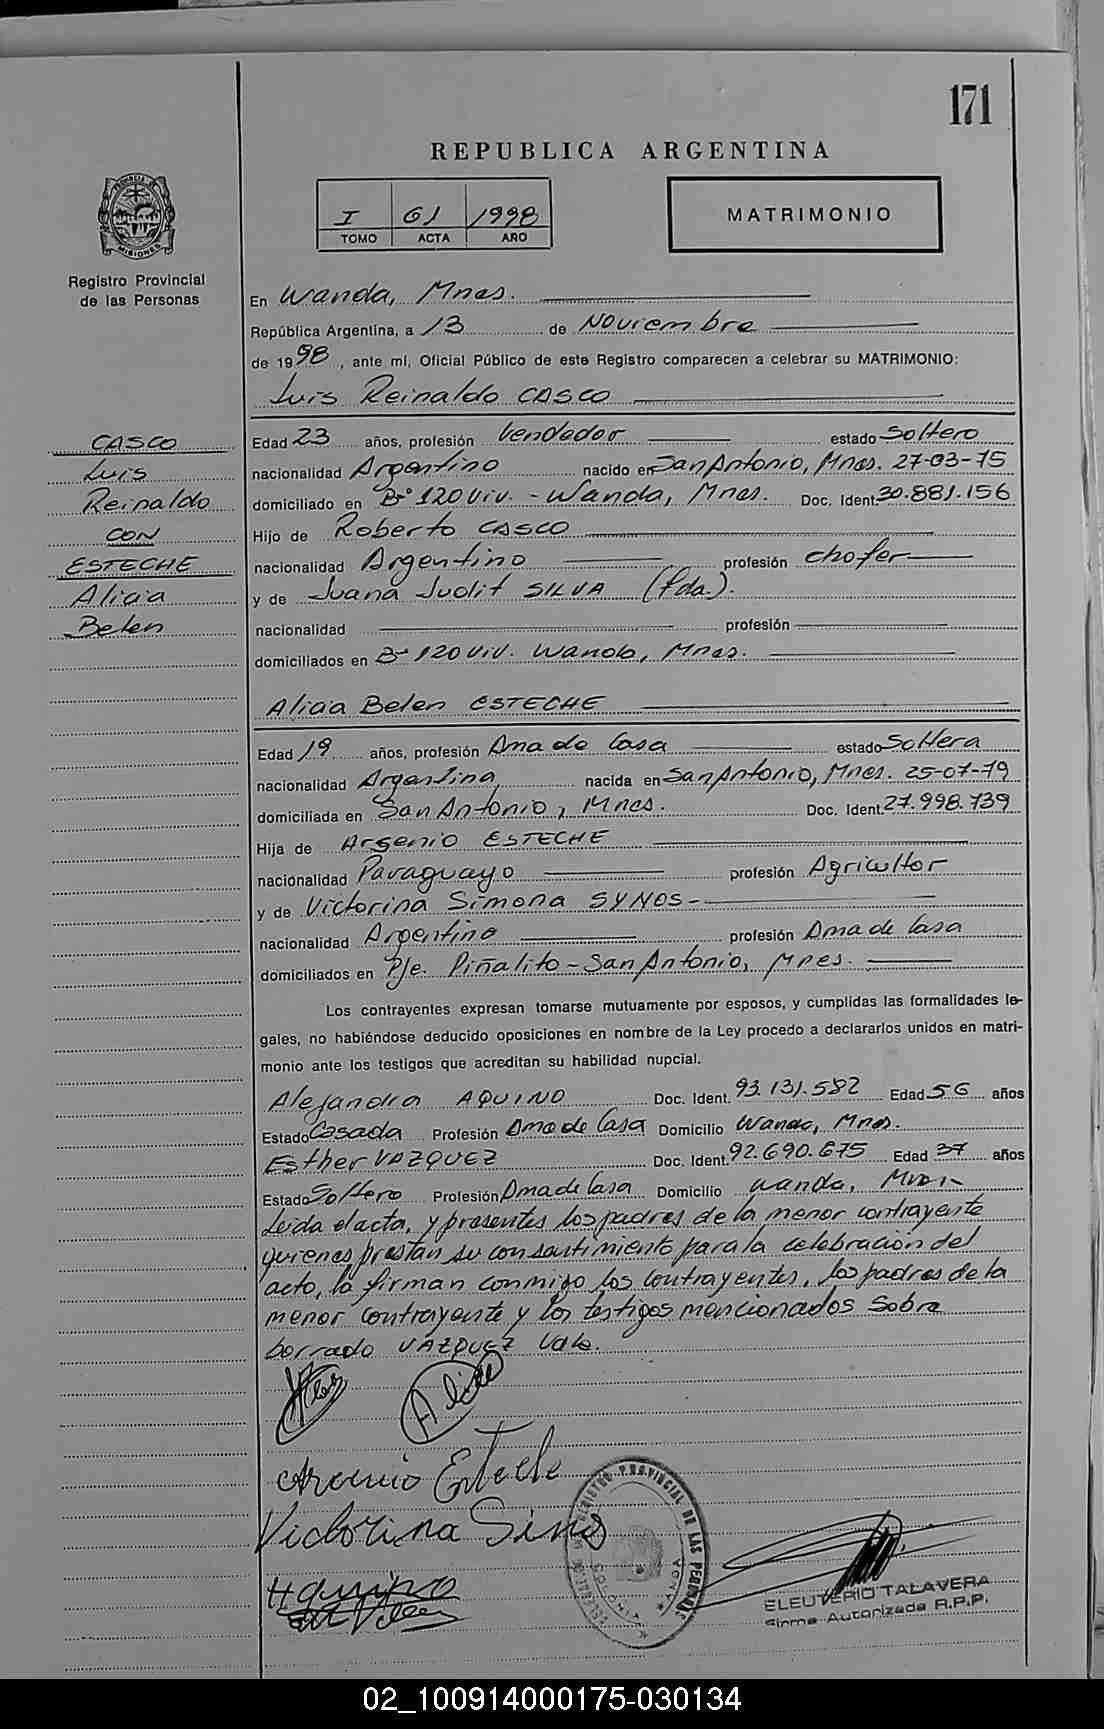 171
REPUBLICA ARGENTINA
I 61 1998
TOMO ACTA AÑO
MATRIMONIO
PROVINCIA DE MISIONES
Registro Provincial
de las Personas
CASCO
Luis
Reinaldo
CON
ESTECHE
Alicia
Belen
En Wanda, Mnes.
República Argentina, a 13 de Noviembre
de 1998, ante mí, Oficial Público de este Registro comparecen a celebrar su MATRIMONIO:
Luis Reinaldo CASCO
Edad 23 años, profesión Vendedor estado Soltero
nacionalidad Argentino nacido en San Antonio, Mnes. 27-03-75
domiciliado en B° 120 Viv. - Wanda, Mnes. Doc. Ident. 30.881.156
Hijo de Roberto CASCO
nacionalidad Argentino profesión chofer
y de Juana Judit SILVA (fda.).
nacionalidad profesión
domiciliados en B° 120 Viv. Wanda, Mnes.
Alicia Belen ESTECHE
Edad 19 años, profesión Ama de Casa estado Soltera
nacionalidad Argentina nacida en San Antonio, Mnes. 25-07-79
domiciliada en San Antonio, Mnes. Doc. Ident. 27.998.739
Hija de Arsenio ESTECHE
nacionalidad Paraguayo profesión Agricultor
y de Victorina Simona SYNOS-
nacionalidad Argentino profesión Ama de Casa
domiciliados en Pje. Piñalito - San Antonio, Mnes.
Los contrayentes expresan tomarse mutuamente por esposos, y cumplidas las formalidades le-
gales, no habiéndose deducido oposiciones en nombre de la Ley procedo a declararlos unidos en matri-
monio ante los testigos que acreditan su habilidad nupcial.
Alejandra AQUINO Doc. Ident. 93.131.582 Edad 56 años
Estado Casada Profesión Ama de Casa Domicilio Wanda, Mnes.
Esther VAZQUEZ Doc. Ident. 92.690.675 Edad 37 años
Estado Soltero Profesión Ama de Casa Domicilio Wanda,
Leida el acta, y presentes los padres de la menor contrayente
quienes prestan su consentimiento para la celebración del
acto, la firman conmigo los contrayentes, los padres de la
menor contrayente y los testigos mencionados Sobre
borrado VAZQUEZ Vale.
Alicia
Arsenio Esteche
Victorina Sinos
Aquino
REGISTRO PROVINCIAL DE LAS PERSONAS
ELEUTERIO TALAVERA
Firma Autorizada R.P.P.
02_100914000175-030134